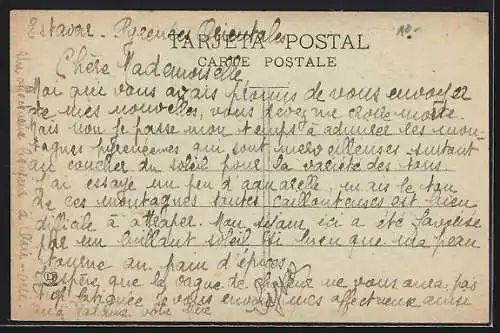 Estavar - Pyrénées Orientales
10-
TARJETA POSTAL
CARTE POSTALE
Chère Mademoiselle
Moi qui vous avais promis de vous envoyer
de mes nouvelles, vous devez me croire morte.
Mais non je passe mon temps à admirer les mon-
tagnes qui sont merveilleuses surtout
au coucher du soleil pour la variété des tons.
J'ai essayé un peu d'aquarelle, mais le ton
de ces montagnes toutes caillouteuses est bien
difficile à attraper. Mon séjour ici a été favorisé
par un brillant soleil si bien que ma peau
tourne au pain d'épices.
J'espère que la vague de chaleur ne vous aura pas
fatiguée je vous envoie mes affectueux
votre